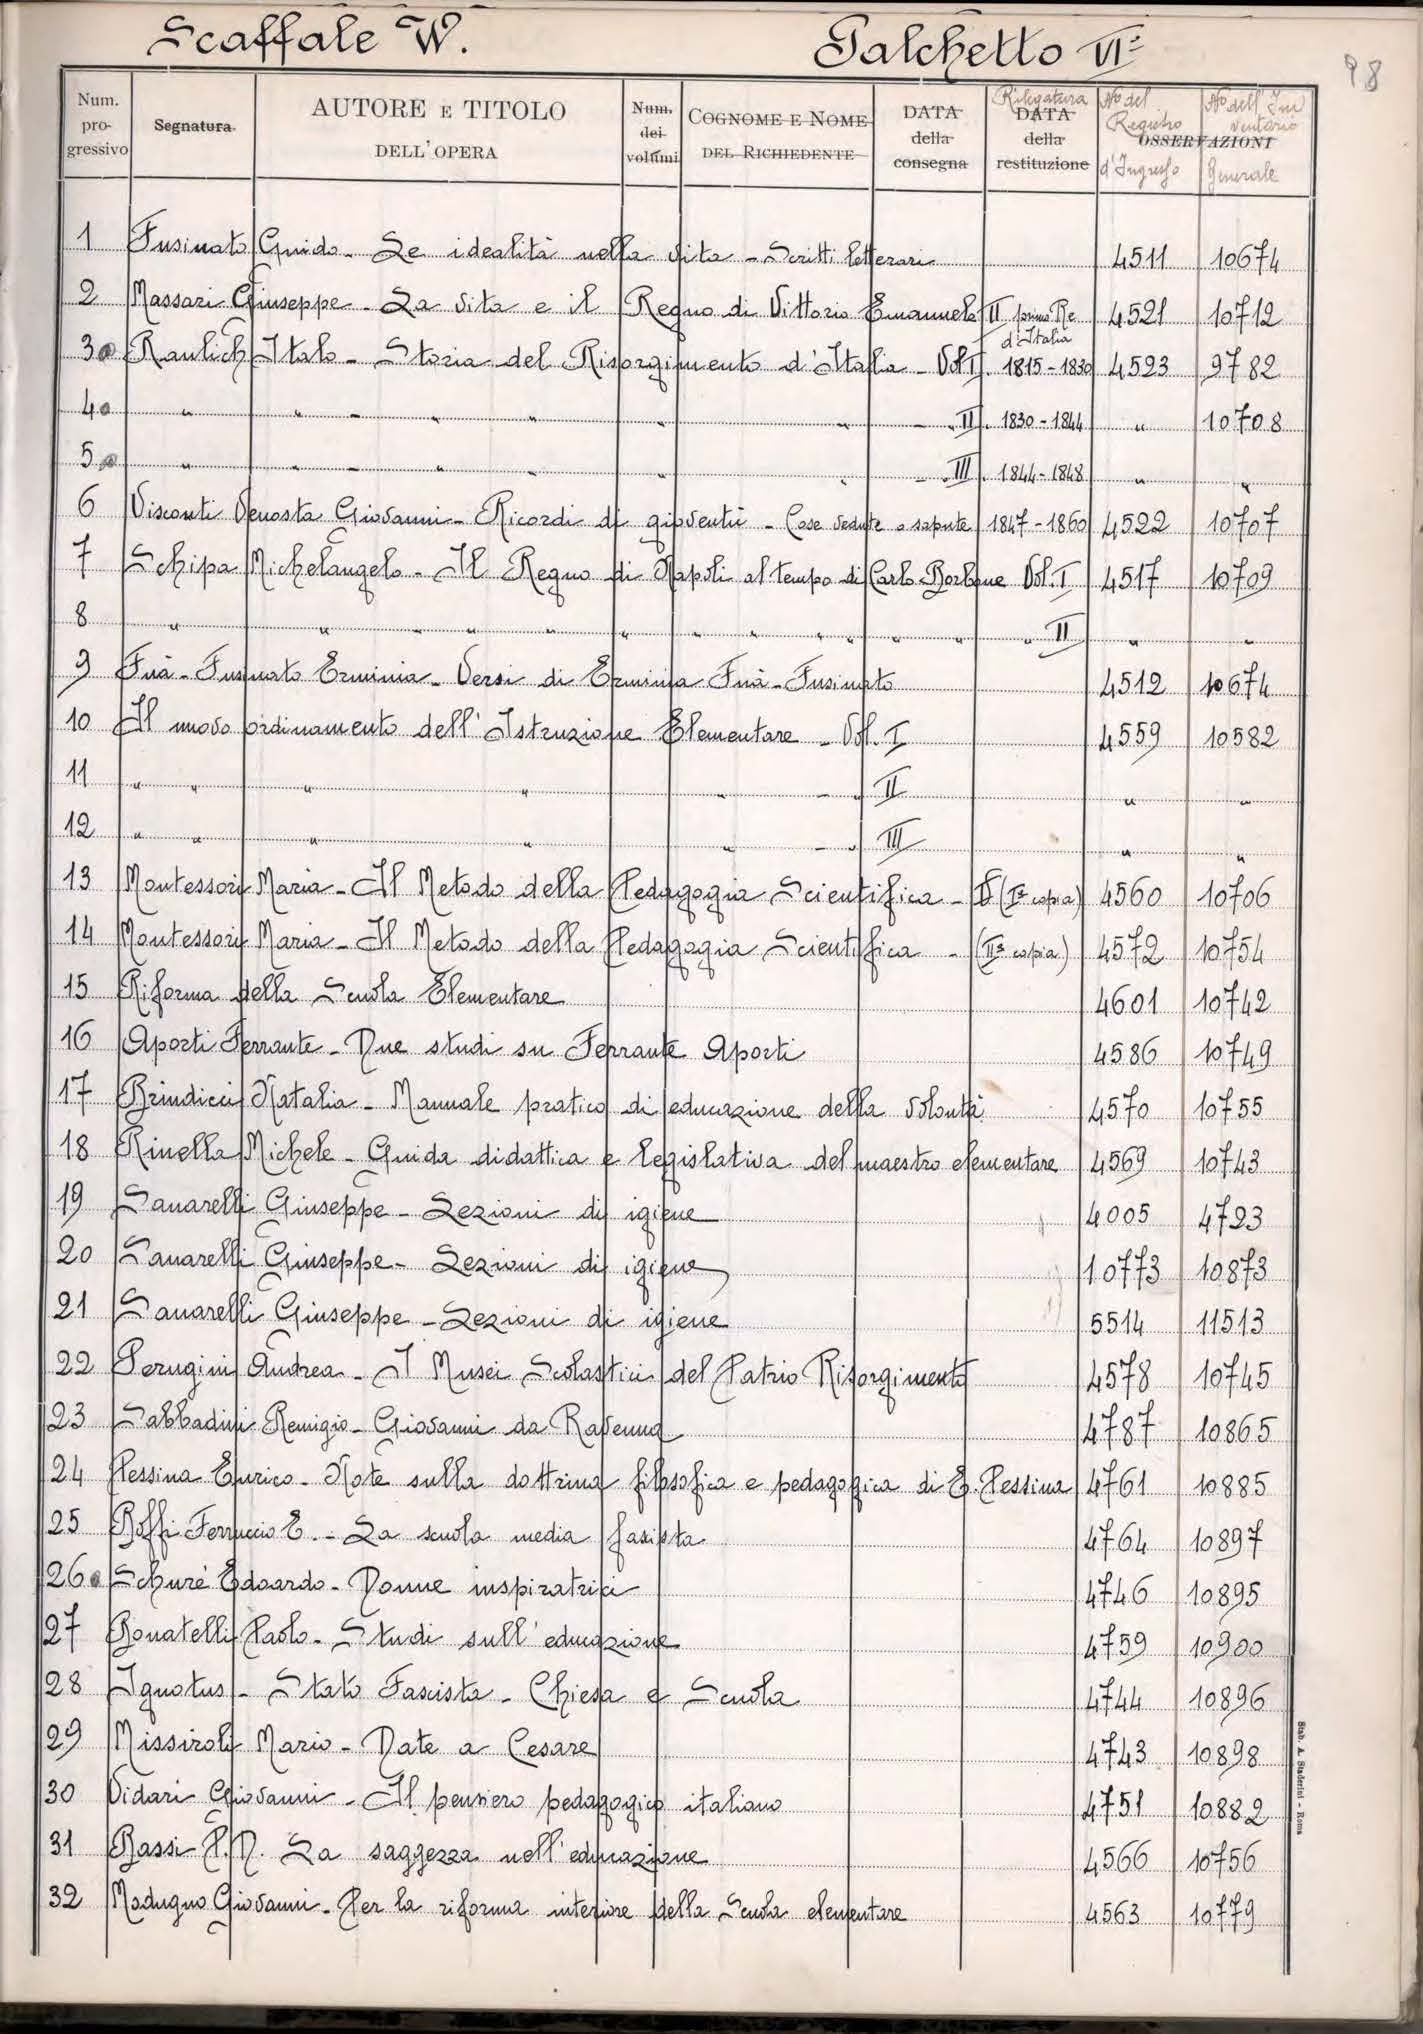 Scaffale W. Palchetto VI:
98
Num. progressivo Segnatura AUTORE E TITOLO DELL'OPERA Num. dei volumi COGNOME E NOME DEL RICHIEDENTE DATA della consegna Rilegatura DATA della restituzione No del Registro d'Ingresso OSSERVAZIONI No dell'Inventario Generale
1 Fusinato Guido - Le idealità nella vita - Scritti letterari 4511 10674
2 Massari Giuseppe - La vita e il Regno di Vittorio Emanuele II primo Re d'Italia 4521 10712
3 Raulich Italo - Storia del Risorgimento d'Italia - Vol I. 1815-1830 4523 9782
4 " " - " " " " - " II. 1830-1844 " 10708
5 " " - " " " " - " III. 1844-1848 " "
6 Visconti Venosta Giovanni - Ricordi di gioventù - Cose vedute o sapute 1847-1860 4522 10707
7 Schipa Michelangelo - Il Regno di Napoli al tempo di Carlo Borbone Vol. I 4517 10709
8 " " " " " " " " " " " " " II " "
9 Fuà-Fusinato Erminia - Versi di Erminia Fuà-Fusinato 4512 10674
10 Il nuovo ordinamento dell'Istruzione Elementare - Vol. I 4559 10582
11 " " " " " - " II " "
12 " " " " " - " III " "
13 Montessori Maria - Il Metodo della Pedagogia Scientifica - (Iª copia) 4560 10706
14 Montessori Maria - Il Metodo della Pedagogia Scientifica - (IIª copia) 4572 10754
15 Riforma della Scuola Elementare 4601 10742
16 Aporti Ferrante - Due studi su Ferrante Aporti 4586 10749
17 Brindicci Natalia - Manuale pratico di educazione della volontà 4570 10755
18 Rinella Michele - Guida didattica e legislativa del maestro elementare 4569 10743
19 Sanarelli Giuseppe - Lezioni di igiene 4005 4723
20 Sanarelli Giuseppe - Lezioni di igiene 10773 10873
21 Sanarelli Giuseppe - Lezioni di igiene 5514 11513
22 Perugini Andrea - I Musei Scolastici del Patrio Risorgimento 4578 10745
23 Sabbadini Remigio - Giovanni da Ravenna 4787 10865
24 Pessina Enrico - Note sulla dottrina filosofica e pedagogica di E. Pessina 4761 10885
25 Boffi Ferruccio E. - La scuola media fascista 4764 10897
26 Schuré Edoardo - Donne inspiratrici 4746 10895
27 Bonatelli Paolo - Studi sull'educazione 4759 10900
28 Ignotus - Stato Fascista - Chiesa e Scuola 4744 10896
29 Missiroli Mario - Date a Cesare 4743 10898
30 Vidari Giovanni - Il pensiero pedagogico italiano 4751 10882
31 Bassi P.D. La saggezza nell'educazione 4566 10756
32 Modugno Giovanni - Per la riforma interiore della Scuola elementare 4563 10779
Stab. A. Staderini - Roma